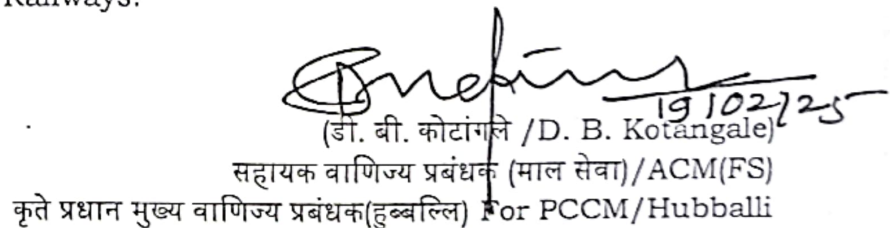 Railways.
19/02/25
(डी. बी. कोटांगले /D. B. Kotangale)
सहायक वाणिज्य प्रबंधक (माल सेवा)/ACM(FS)
कृते प्रधान मुख्य वाणिज्य प्रबंधक(हुब्बल्लि) For PCCM/Hubballi